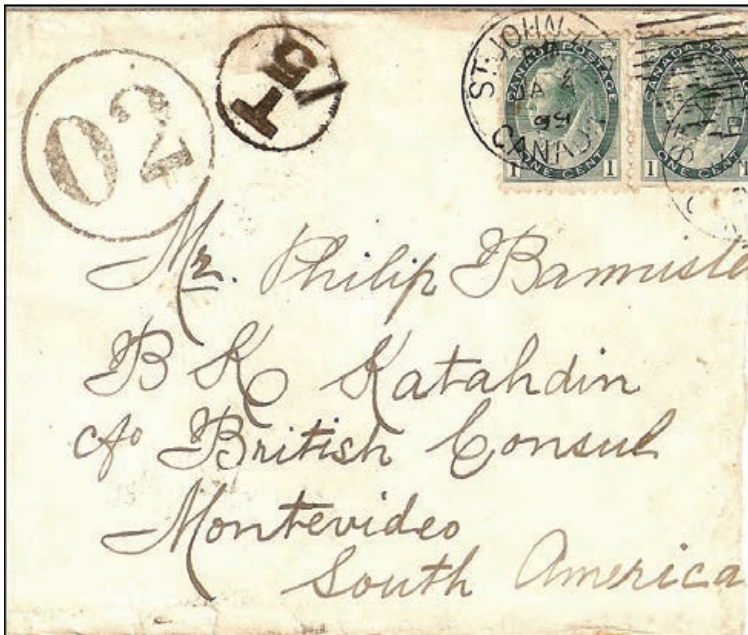 02
T
5
ST. JOHN
JA 4
99
CANADA
CANADA POSTAGE
1 ONE CENT 1
CANADA POSTAGE
1 ONE CENT 1
Mr. Philip Banniste
B K Katahdin
c/o British Consul
Montevideo
South America